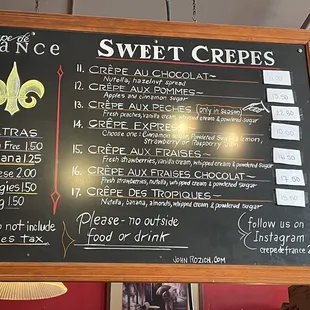 Crêpe de
France
SWEET CREPES
11. CRÊPE AU CHOCOLAT~
Nutella, hazelnut spread
12. CRÊPE AUX POMMES~
Apples and cinnamon sugar
13. CRÊPE AUX PECHES (only in season)
Fresh peaches, vanilla cream, whipped cream & powdered sugar
14. CRÊPE EXPRESS
Choose one: Cinnamon sugar, Powdered sugar & lemon,
Strawberry or Raspberry Jam
15. CRÊPE AUX FRAISES~
Fresh strawberries, vanilla cream, whipped cream & powdered sugar
16. CRÊPE AUX FRAISES CHOCOLAT~
Fresh strawberries, nutella, whipped cream & powdered sugar
17. CRÊPE DES TROPIQUES~
Nutella, banana, almonds, whipped cream & powdered sugar
TRAS
Free 1.50
anana 1.25
ese 2.00
ggies 1.50
g 1.50
o not include
es tax
Please- no outside
food or drink
JOHN ROZICH.COM
follow us on
Instagram
crepedefrance